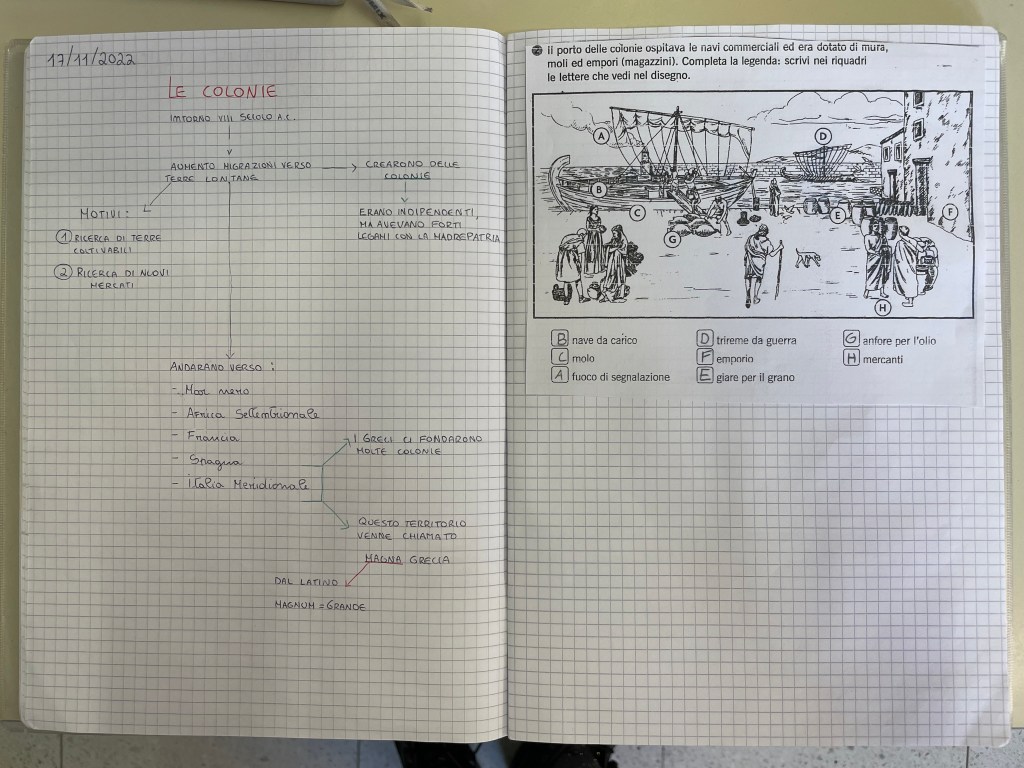 17/11/2022
LE COLONIE
INTORNO VIII SECOLO A.C.
AUMENTO MIGRAZIONI VERSO
TERRE LONTANE
CREARONO DELLE
COLONIE
ERANO INDIPENDENTI,
MA AVEVANO FORTI
LEGAMI CON LA MADREPATRIA
MOTIVI:
1 RICERCA DI TERRE
COLTIVABILI
2 RICERCA DI NUOVI
MERCATI
ANDARANO VERSO:
- Mar nero
- Africa Settentrionale
- Francia
- Spagna
- italia Meridionale
I GRECI CI FONDARONO
MOLTE COLONIE
QUESTO TERRITORIO
VENNE CHIAMATO
MAGNA GRECIA
DAL LATINO
MAGNUM = GRANDE
Il porto delle colonie ospitava le navi commerciali ed era dotato di mura,
moli ed empori (magazzini). Completa la legenda: scrivi nei riquadri
le lettere che vedi nel disegno.
A
D
B
C
E
F
G
H
B nave da carico
C molo
A fuoco di segnalazione
D trireme da guerra
F emporio
E giare per il grano
G anfore per l'olio
H mercanti